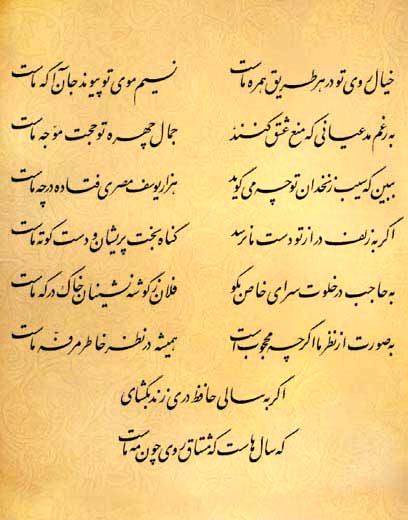 خیال روی تو در هر طریق همره ماست نسیم موی تو پیوند جان آگه ماست
به رغم مدعیانی که منع عشق کنند جمال چهره تو حجت موجه ماست
ببین که سیب زنخدان تو چه می گوید هزار یوسف مصری فتاده در چه ماست
اگر به زلف دراز تو دست ما نرسد گناه بخت پریشان و دست کوته ماست
به حاجب در خلوت سرای خاص بگو فلان ز گوشه نشینان خاک درگه ماست
به صورت از نظر ما اگر چه محجوب است همیشه در نظر خاطر مرفه ماست
اگر به سالی حافظ دری زند بگشای
که سال هاست که مشتاق روی چون مه ماست